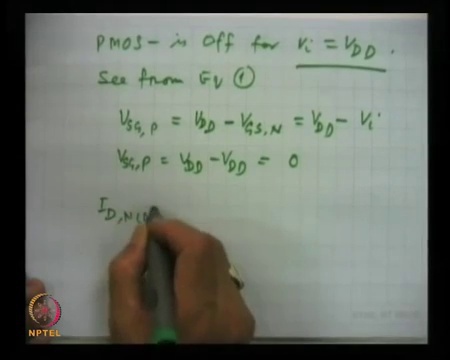 PMOS – is Off for Vi = VDD.
See from EV ①
VSG,P = VDD – VGS,N = VDD – Vi
VSG,P = VDD – VDD = 0
ID,N(
NPTEL